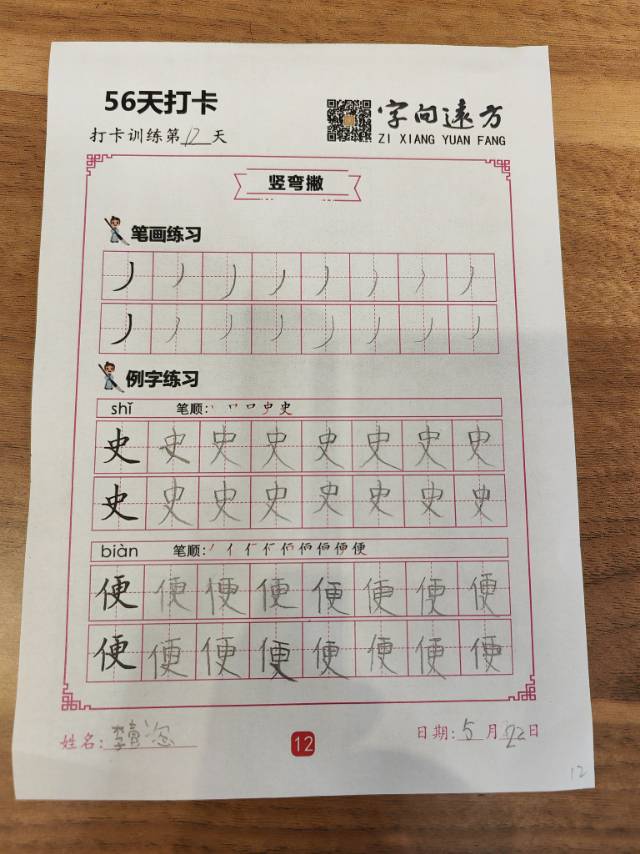 56天打卡
字向远方
打卡训练第12天
ZI XIANG YUAN FANG
竖弯撇
笔画练习
丿丿丿丿丿丿丿丿
丿丿丿丿丿丿丿丿
例字练习
shǐ 笔顺:
史史史史史史史史
史史史史史史史史
biàn 笔顺:
便便便便便便便便
便便便便便便便便
姓名:李
12
日期:5月22日
12